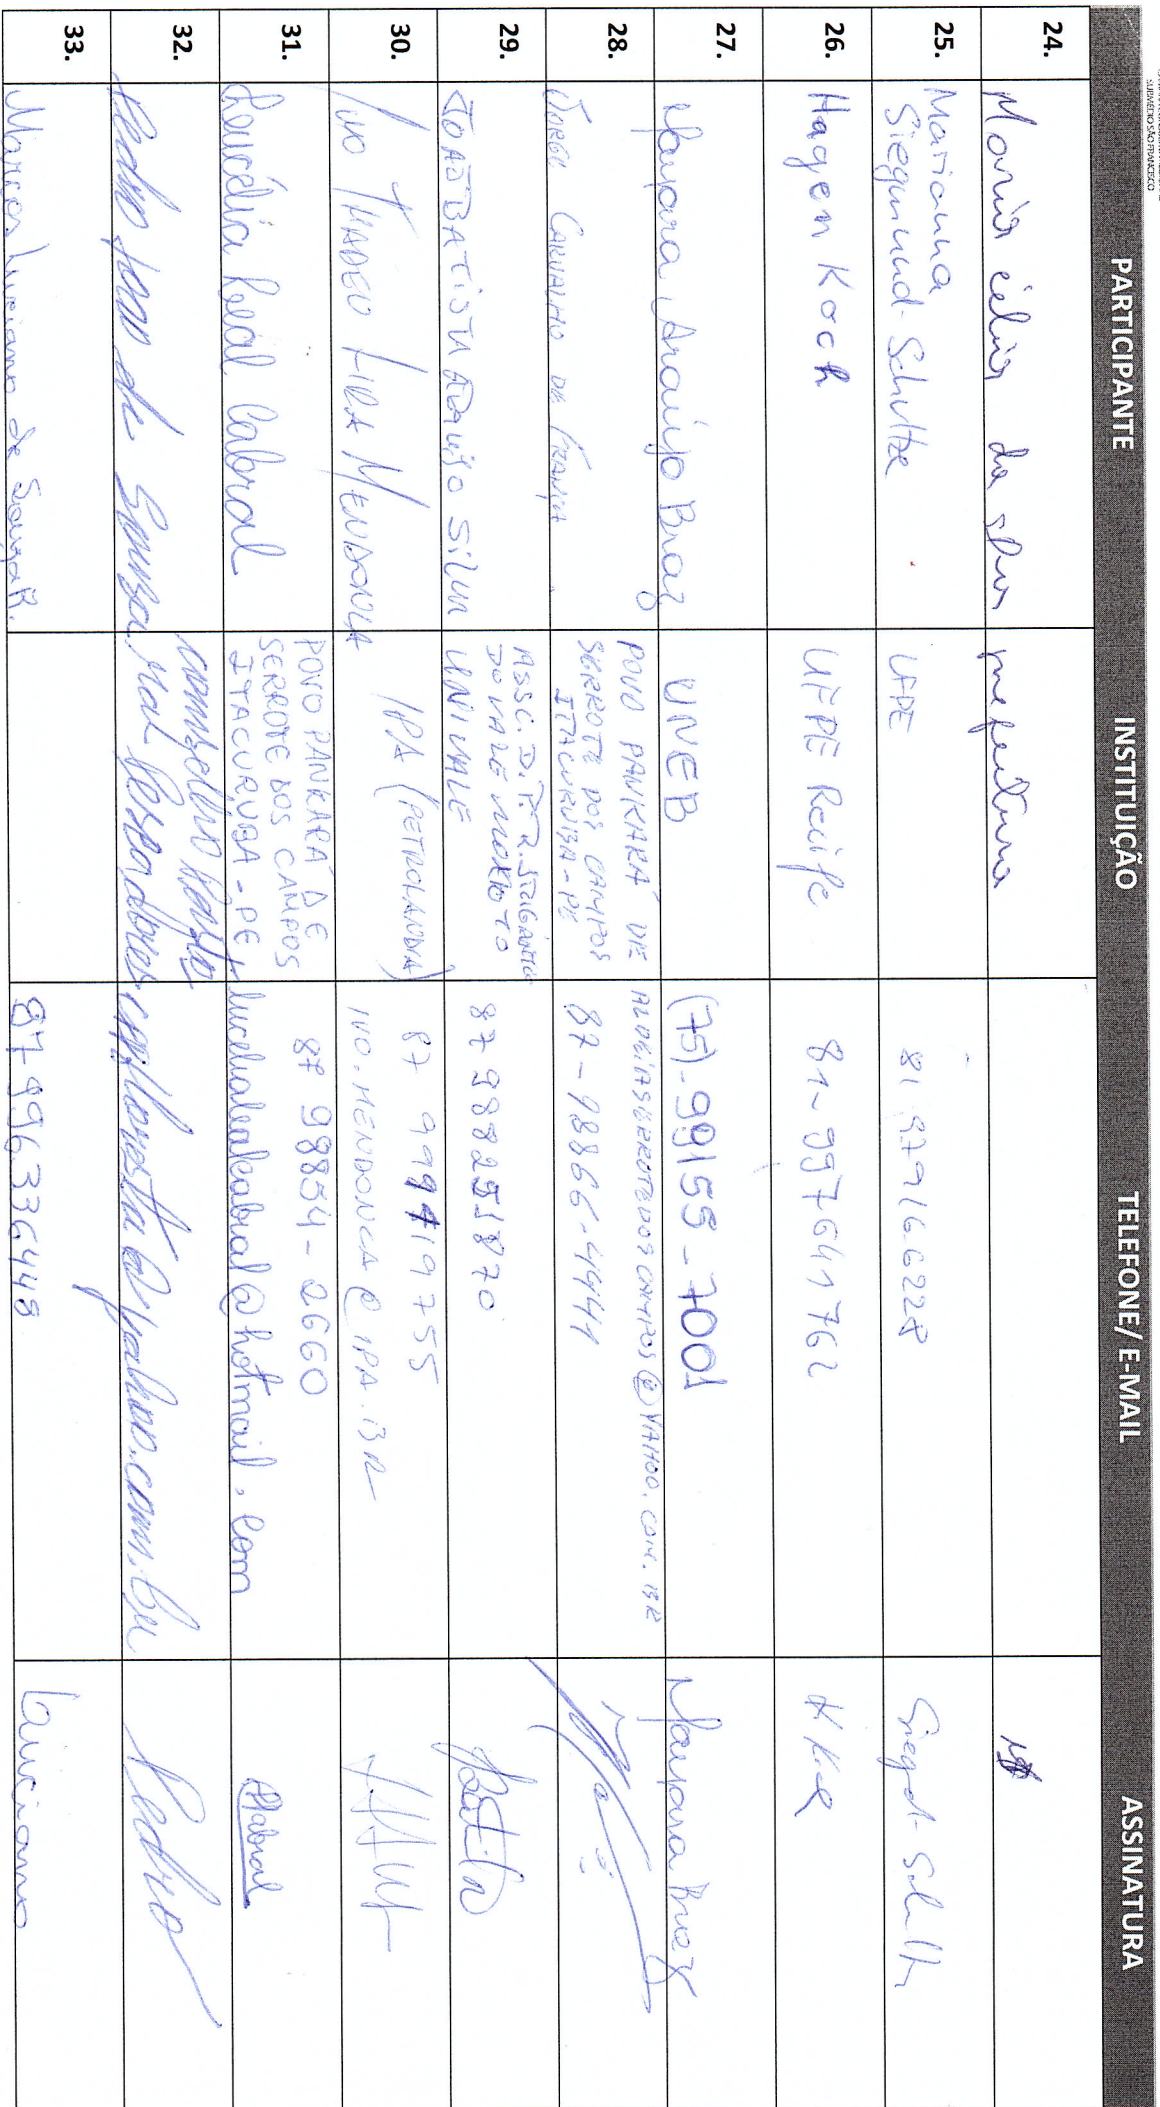 SUBMÉDIO SÃO FRANCISCO
PARTICIPANTE INSTITUIÇÃO TELEFONE/ E-MAIL ASSINATURA
24. Maria célia da silva prefeitura
25. Marianna
Siegmund-Schultze UFPE 81 97916 6228 Siegd-Schultz
26. Hagen Koch UFPE Recife 81~997641762
27. Mayara Araújo Braz UNEB (75)-99155-7001 Mayara Braz
28. Jorge Carvalho de França
POVO PANKARÁ DE
SERROTE DOS CAMPOS
ITACURUBA-PE
87-98866-4441
29. JOÃO BATISTA ARAUJO SILVA
DO VALE MOXOTO
UNIVALE 87 988251870 Batista
30. IVO THADEO LIRA MENDONÇA IPA (PETROLANDIA) 87 999419755
IVO.MENDONCA@IPA.BR
31. Lucélia Leal Cabral
POVO PANKARÁ DE
SERROTE DOS CAMPOS
ITACURUBA-PE
87 98834-2660
lucelialealcabral@hotmail.com
Cabral
32. Pedro de Souza @yahoo.com.br Pedro
33. Marcos Luciano de Souza R. 87 996336448 Luciano